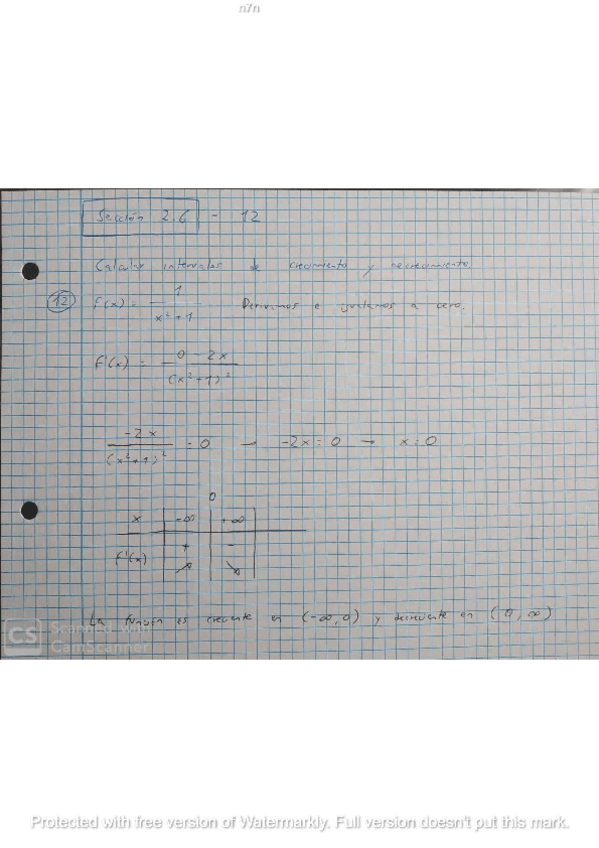 n7n
Sección 2.6 - 12
Calcular intervalos de crecimiento y decrecimiento
12 f(x) = 1 / (x² + 1) Derivamos e igualamos a cero.
f'(x) = (0 - 2x) / (x² + 1)²
-2x / (x² + 1)² = 0 → -2x = 0 → x = 0
0
x | -∞ | +∞ |
f'(x) | + | - |
↗ ↘
La función es creciente en (-∞, 0) y decreciente en (0, ∞)
CS Scanned with
CamScanner
Protected with free version of Watermarkly. Full version doesn't put this mark.